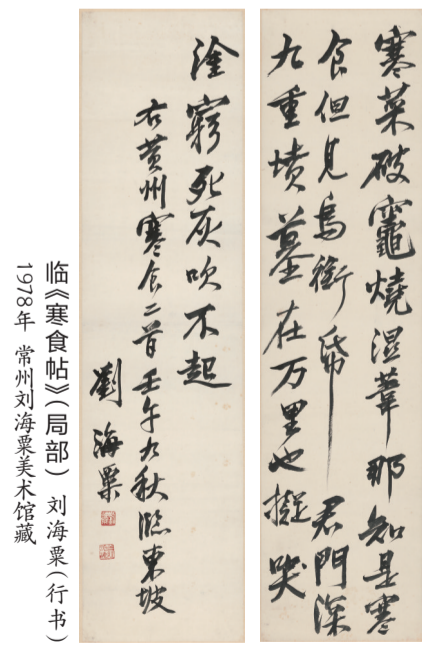 寒菜破竈燒湿葦那知是寒
食但見烏銜帋君門深
九重墳墓在万里也擬哭
塗窮死灰吹不起
右黄州寒食二首壬午九秋臨東坡
劉海粟
临《寒食帖》(局部) 刘海粟(行书)
1978年 常州刘海粟美术馆藏